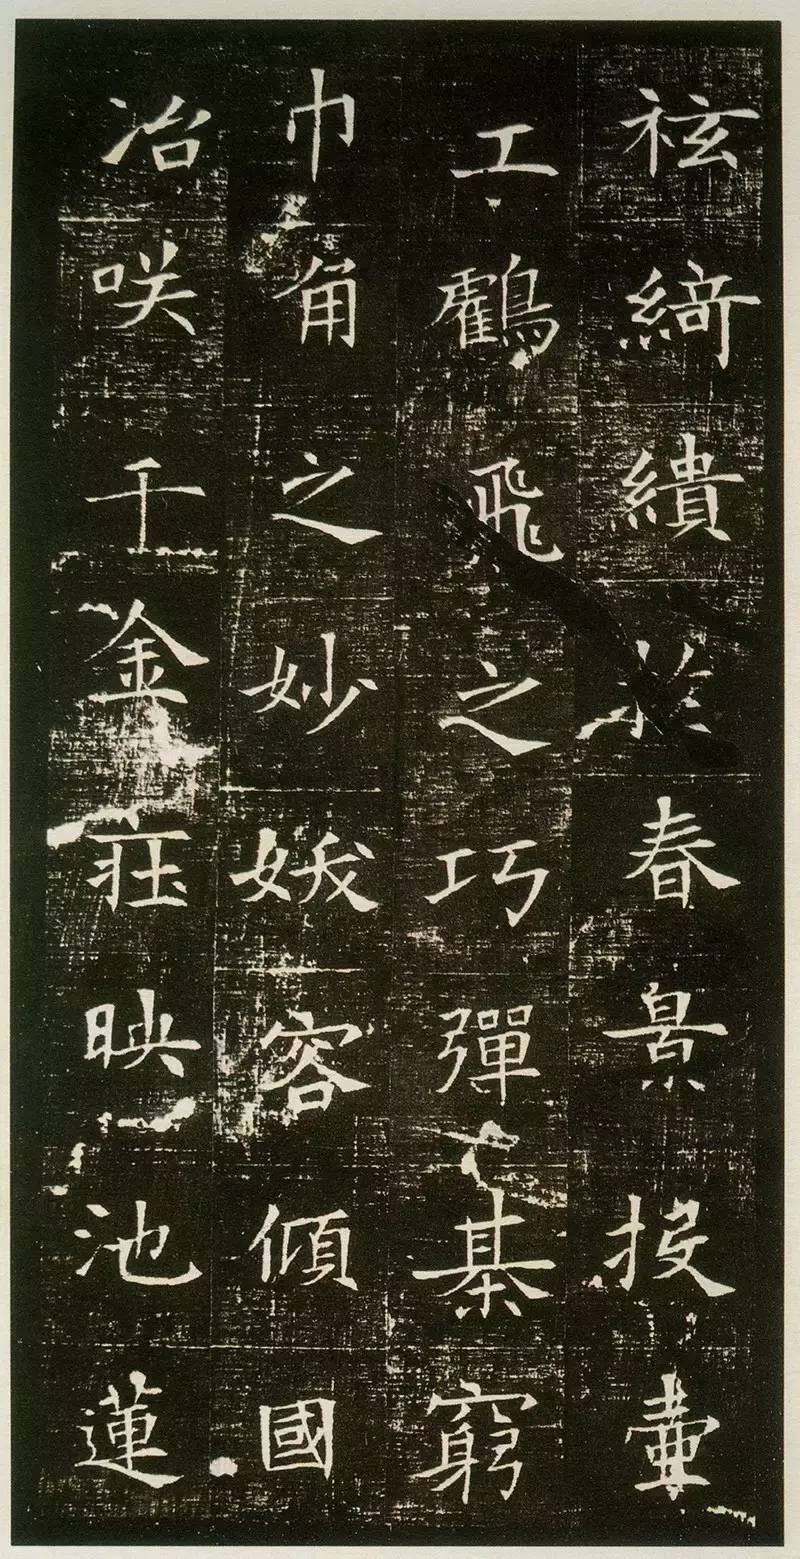 袨綺繢於春景投壷
工鸖飛之巧彈棊窮
巾角之妙妙娥容傾國
冶咲千金莊映池蓮